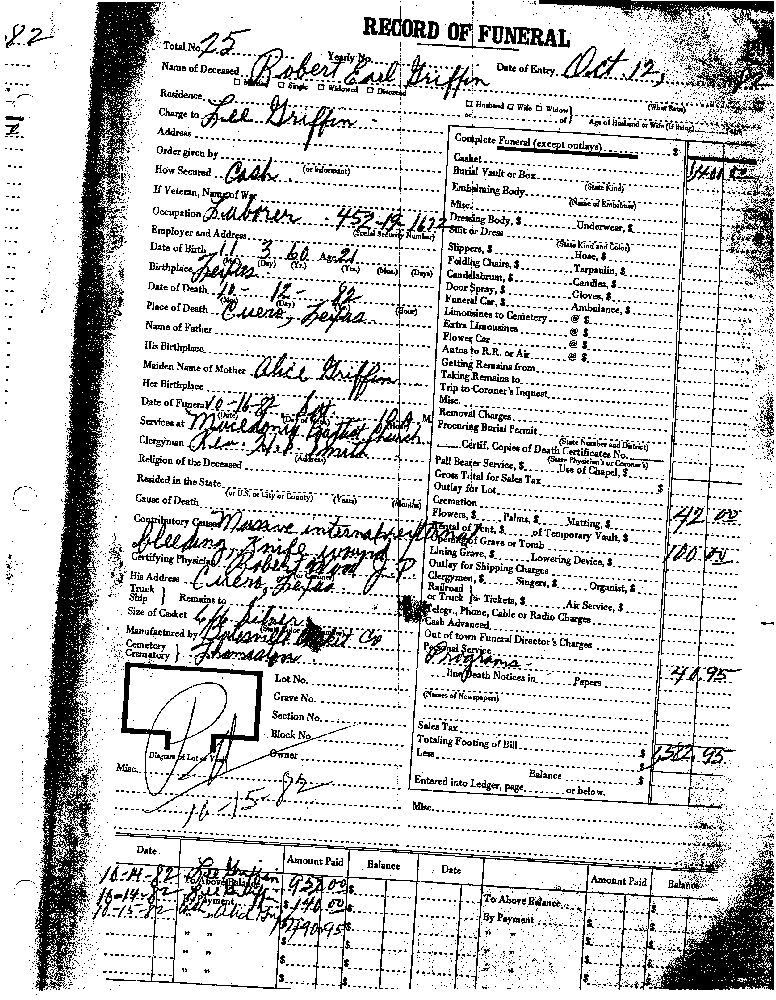 82
RECORD OF FUNERAL
Total No. 25 Yearly No.
Name of Deceased Robert Earl Griffin Date of Entry Oct. 12,
□ Single □ Widowed □ Divorced
Residence □ Husband □ Wife □ Widow of
Age of Husband or Wife (if living) Years
Charge to Lee Griffin
Address
Order given by (or informant)
How Secured Cash
If Veteran, Name of War
Occupation Laborer 453-19-
(Social Security Number)
Employer and Address
Date of Birth 11 3 60 Age 21
(Mo.) (Day) (Yr.) (Yrs.) (Mos.) (Days)
Birthplace Texas
Date of Death 10- 12- 82
(Mo.) (Day) (Hour)
Place of Death Cuero, Texas
Name of Father
His Birthplace
Maiden Name of Mother Alice Griffin
Her Birthplace
Date of Funeral 10-16-82 Sat. M.
(Date)
Services at Macedonia Baptist Church
Clergyman Rev. Smith
(Address)
Religion of the Deceased
Resided in the State
(or U.S. or City or County) (Years) (Months)
Cause of Death
Contributory Causes Massive internal external
bleeding, knife wound
Certifying Physician Robert J.P.
His Address Cuero, Texas
Truck Ship } Remains to
Size of Casket 6/6 Silver
Manufactured by Co
Cemetery Crematory }
Lot No.
Grave No.
Section No.
Block No.
Owner
Diagram of Lot or Vault
Pd
Misc.
10-15-82
Complete Funeral (except outlays) $
Casket
Burial Vault or Box
(State Kind)
Embalming Body
(Name of Embalmer)
Misc.
Dressing Body, $ Underwear, $
Suit or Dress
(State Kind and Color)
Slippers, $ Hose, $
Folding Chairs, $ Tarpaulin, $
Candelabrum, $ Candles, $
Door Spray, $ Gloves, $
Funeral Car, $ Ambulance, $
Limousines to Cemetery @ $
Extra Limousines @ $
Flower Car @ $
Autos to R.R. or Air @ $
Getting Remains from
Taking Remains to
Trip to Coroner's Inquest
Misc.
Removal Charges
Procuring Burial Permit
(State Number and District)
Certif. Copies of Death Certificates No.
(State Physician's or Coroner's)
Pall Bearer Service, $ Use of Chapel, $
Gross Total for Sales Tax $
Outlay for Lot
Cremation
Flowers, $ Palms, $ Matting, $ 42.00
Rental of Tent, $ of Temporary Vault, $
Opening of Grave or Tomb 100.00
Lining Grave, $ Lowering Device, $
Outlay for Shipping Charges
Clergymen, $ Singers, $ Organist, $
Railroad or Truck } $ Tickets, $ Air Service, $
Telegr., Phone, Cable or Radio Charges
Cash Advanced
Out of town Funeral Director's Charges
Personal Service
Programs
line Death Notices in Papers 40.95
(Names of Newspapers)
Sales Tax
Totaling Footing of Bill $ 1,582.95
Less $
Balance $
Entered into Ledger, page or below.
Misc.
Date Amount Paid Balance Date Amount Paid Balance
10-14-82 Lee Griffin
To Above Balance 952.00 $ To Above Balance $
10-14-82 By Payment $ 140.00 By Payment $
10-15-82
490.95